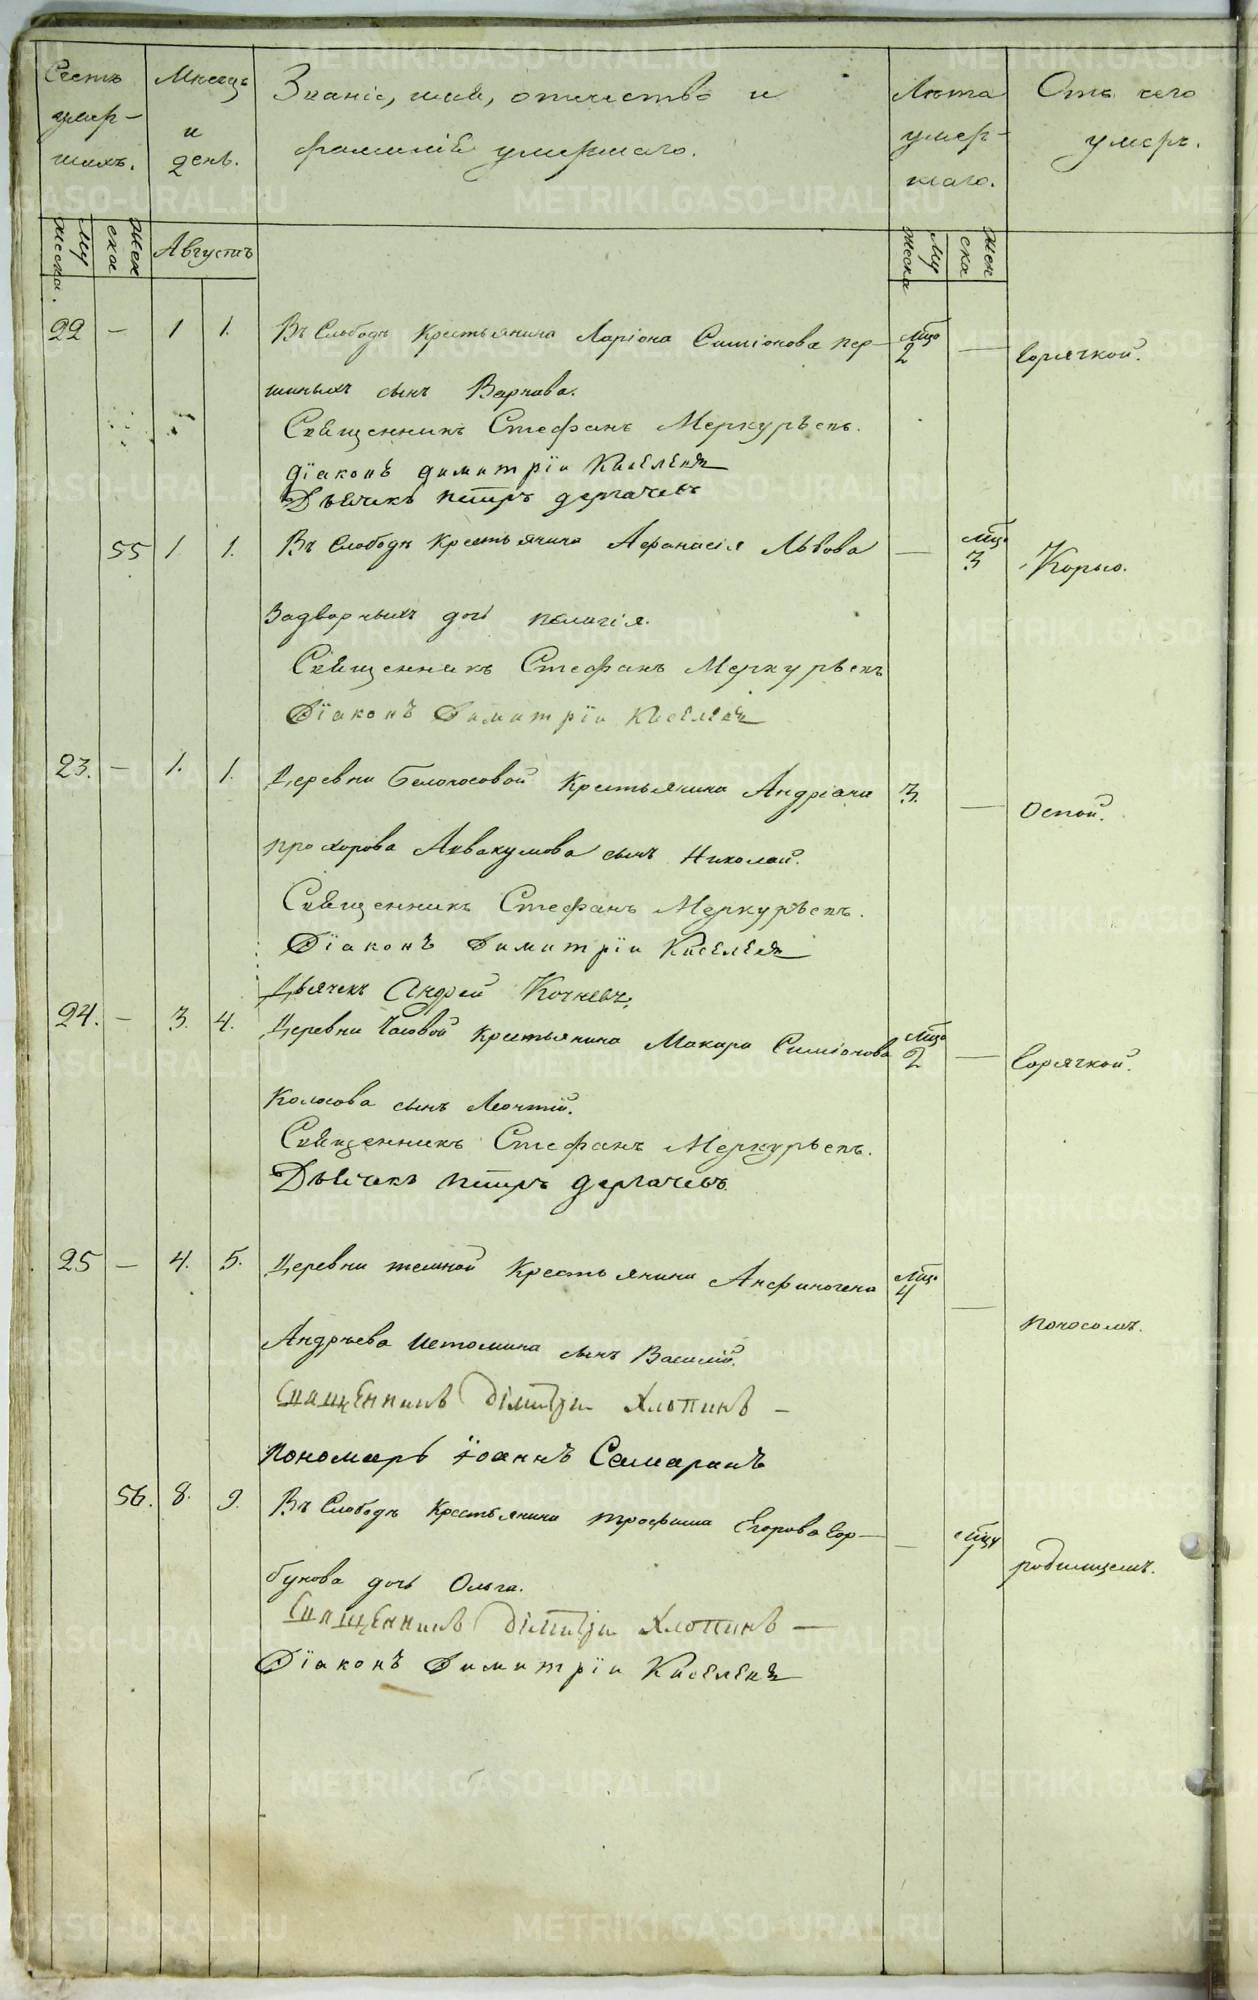 Счетъ умер-шихъ.
Мѣсяцъ и день.
Званіе, имя, отчество и фамилія умершаго.
Лѣта умер-шаго.
Отъ чего умеръ.
му жеска.
жен ска
Августъ
му жеска
жен ска
22 — 1 1. Въ Слободѣ Крестьянина Ларіона Симіонова пер- мцо 2 — Горячкой.
шиныхъ сынъ Варнава.
Священникъ Стефанъ Меркурьевъ.
Діаконъ Димитріи Киселевъ
Дьячекъ петръ дергачевъ
55 1 1. Въ Слободѣ Крестьянина Афанасія Львова — мцо 3 Корью.
Задворныхъ дочь пелагія.
Священникъ Стефанъ Меркурьевъ
Діаконъ Димитріи Киселевъ
23. — 1. 1. Деревни Белоносовой Крестьянина Андріана 3. — Оспой.
прохорова Аввакумова сынъ Николай.
Священникъ Стефанъ Меркурьевъ.
Діаконъ Димитріи Киселевъ
Дьячекъ Андрей Кочневъ
24. — 3. 4. Деревни Часовой Крестьянина Макара Симіонова мцо 2 — Горячкой.
Колосова сынъ Леонтій.
Священникъ Стефанъ Меркурьевъ.
Дьячекъ петръ дергачевъ
25 — 4. 5. Деревни темной Крестьянина Анфиногена мцо 4 — поносомъ.
Андрѣева Истомина сынъ Василій.
Священникъ Дімітри Хлопинъ —
пономарь Іоаннъ Самаринъ
56. 8. 9. Въ Слободѣ Крестьянина трофима Егорова Гор- — мцу 1 родимцемъ.
бунова дочь Ольга.
Священникъ Дімітри Хлопинъ —
Діаконъ Димитріи Киселевъ
METRIKI.GASO-URAL.RU